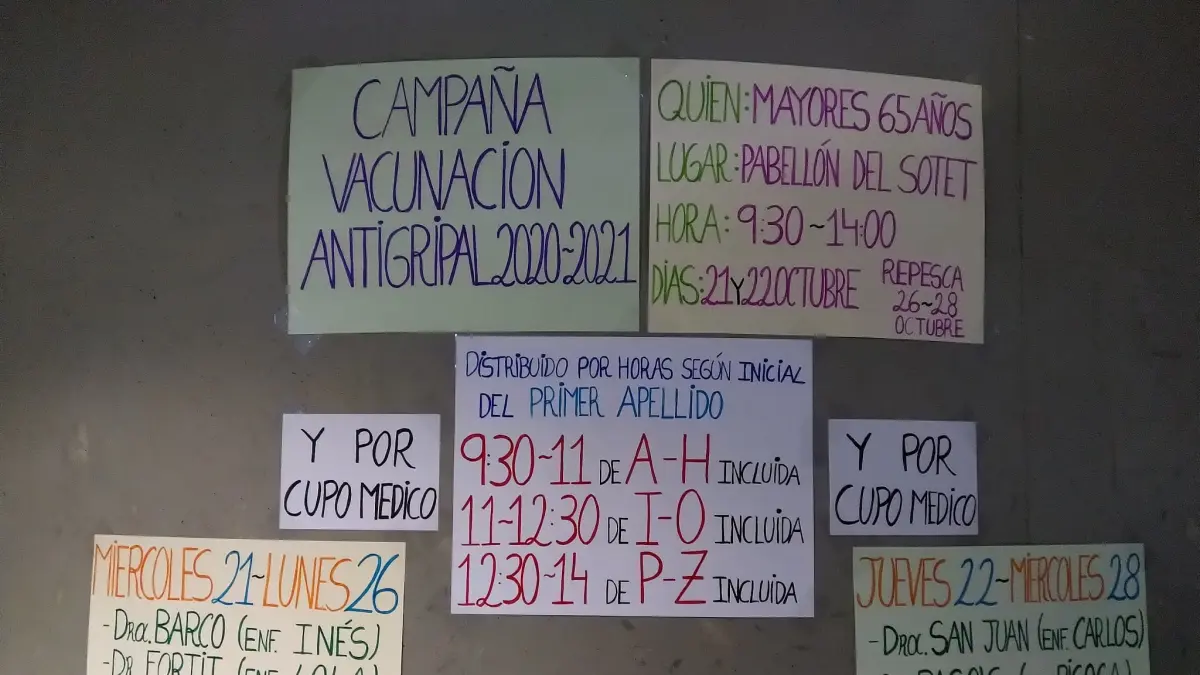 CAMPAÑA
VACUNACION
ANTIGRIPAL 2020~2021
QUIEN: MAYORES 65 AÑOS
LUGAR: PABELLÓN DEL SOTET
HORA: 9:30~14:00
DÍAS: 21 Y 22 OCTUBRE
REPESCA
26~28
OCTUBRE
DISTRIBUIDO POR HORAS SEGÚN INICIAL
DEL PRIMER APELLIDO
9:30~11 DE A-H INCLUIDA
11~12:30 DE I-O INCLUIDA
12:30~14 DE P-Z INCLUIDA
Y POR
CUPO MEDICO
Y POR
CUPO MEDICO
MIERCOLES 21~LUNES 26
-Dra. BARCO (ENF. INÉS)
-DR FORTIT (ENF LOLA)
JUEVES 22~MIERCOLES 28
-Dra. SAN JUAN (ENF. CARLOS)